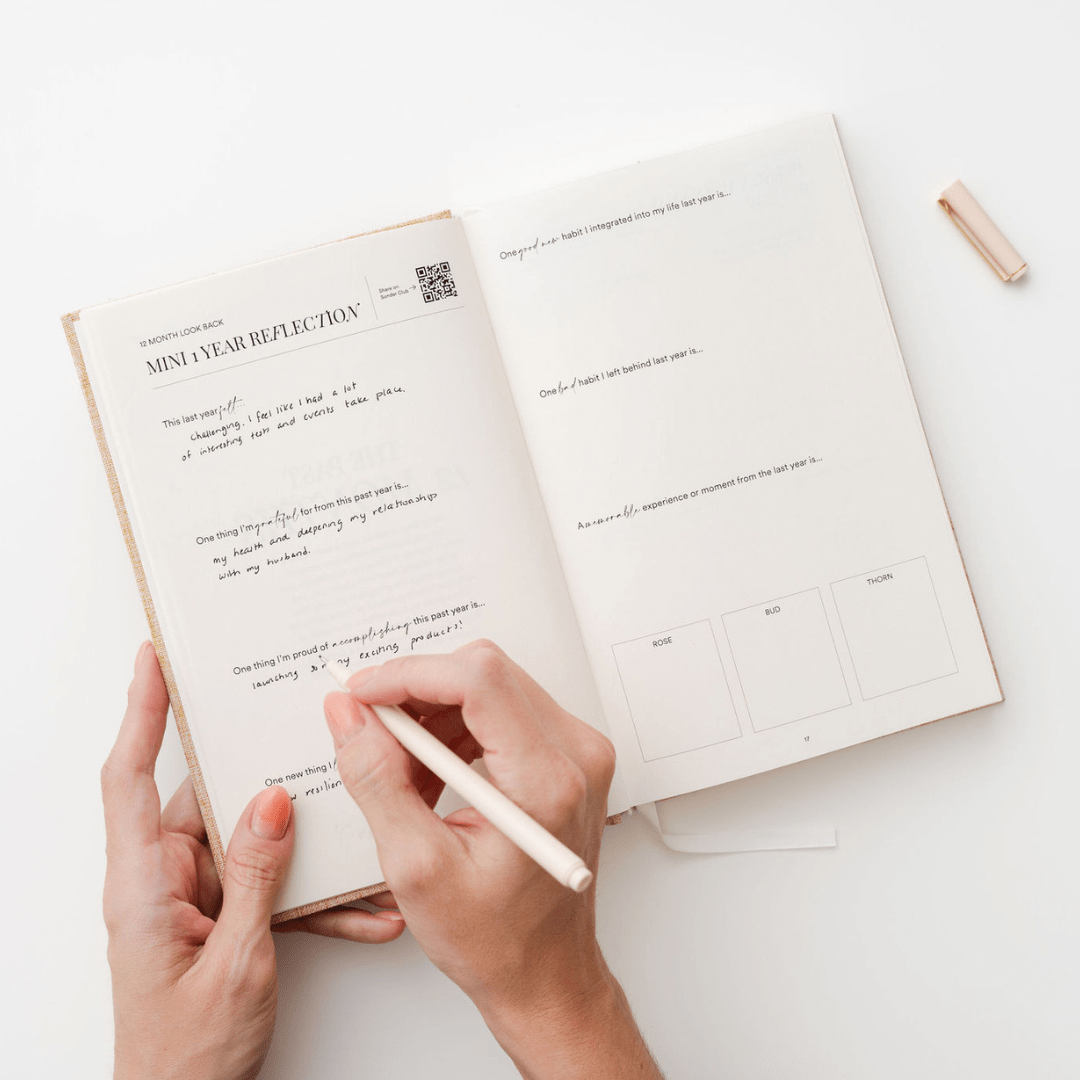 12 MONTH LOOK BACK
MINI 1 YEAR REFLECTION
Share on
Sonder Club →
This last year felt...
Challenging. I feel like I had a lot
of interesting tests and events take place.
One thing I'm grateful for from this past year is...
my health and deepening my relationship
with my husband.
One thing I'm proud of accomplishing this past year is...
launching many exciting products!
One new thing I
resilien
One good new habit I integrated into my life last year is...
One bad habit I left behind last year is...
A memorable experience or moment from the last year is...
ROSE
BUD
THORN
17